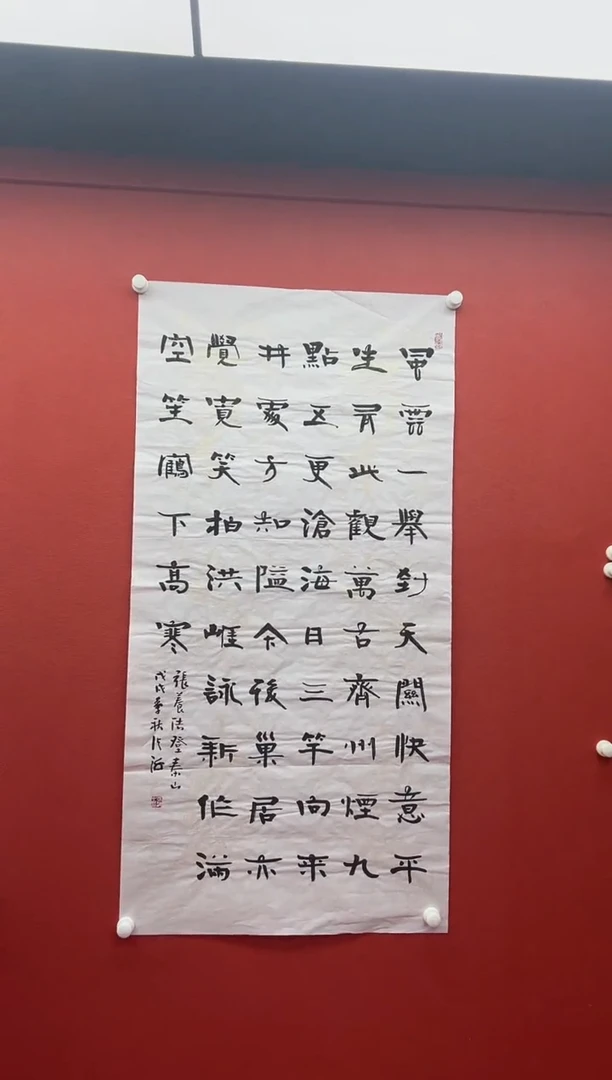 風雲一舉到天關快意平
生有此觀萬古齊州煙九
點五更滄海日三竿向来
井處方知隘今後巢居亦
覺寬笑拍洪崖詠新作滿
空笙鶴下高寒
張養浩登泰山
戊戌季秋